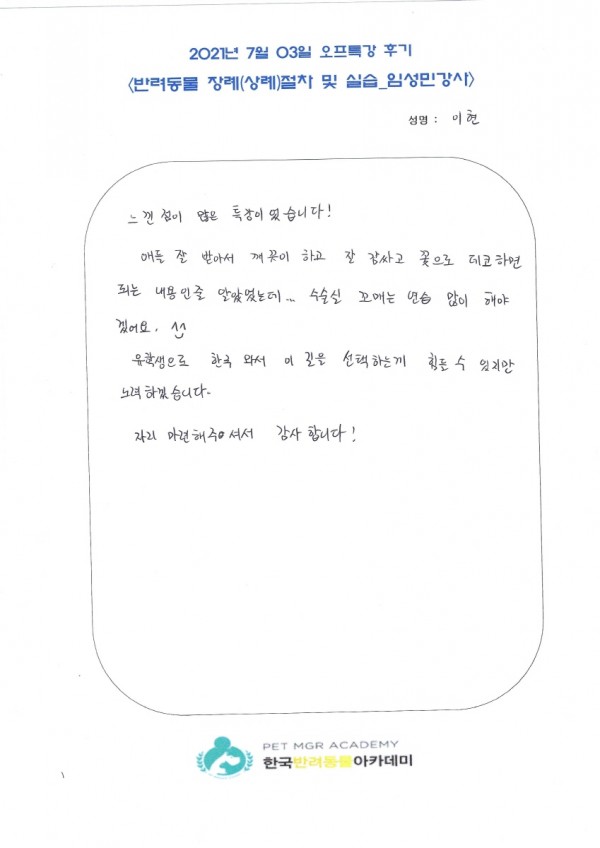 2021년 7월 03일 오프특강 후기
<반려동물 장례(상례)절차 및 실습_임성민강사>
성명 : 이현
느낀 점이 많은 특강이였습니다!
애들 잘 받아서 깨끗이 하고 잘 감싸고 꽃으로 데코하면
되는 내용인줄 알았었는데... 수술실 꼬매는 연습 많이 해야
겠어요. ^^
유학생으로 한국 와서 이 길을 선택하는게 힘들 수 있지만
노력하겠습니다.
자리 마련해주셔서 감사합니다!
PET MGR ACADEMY
한국반려동물아카데미